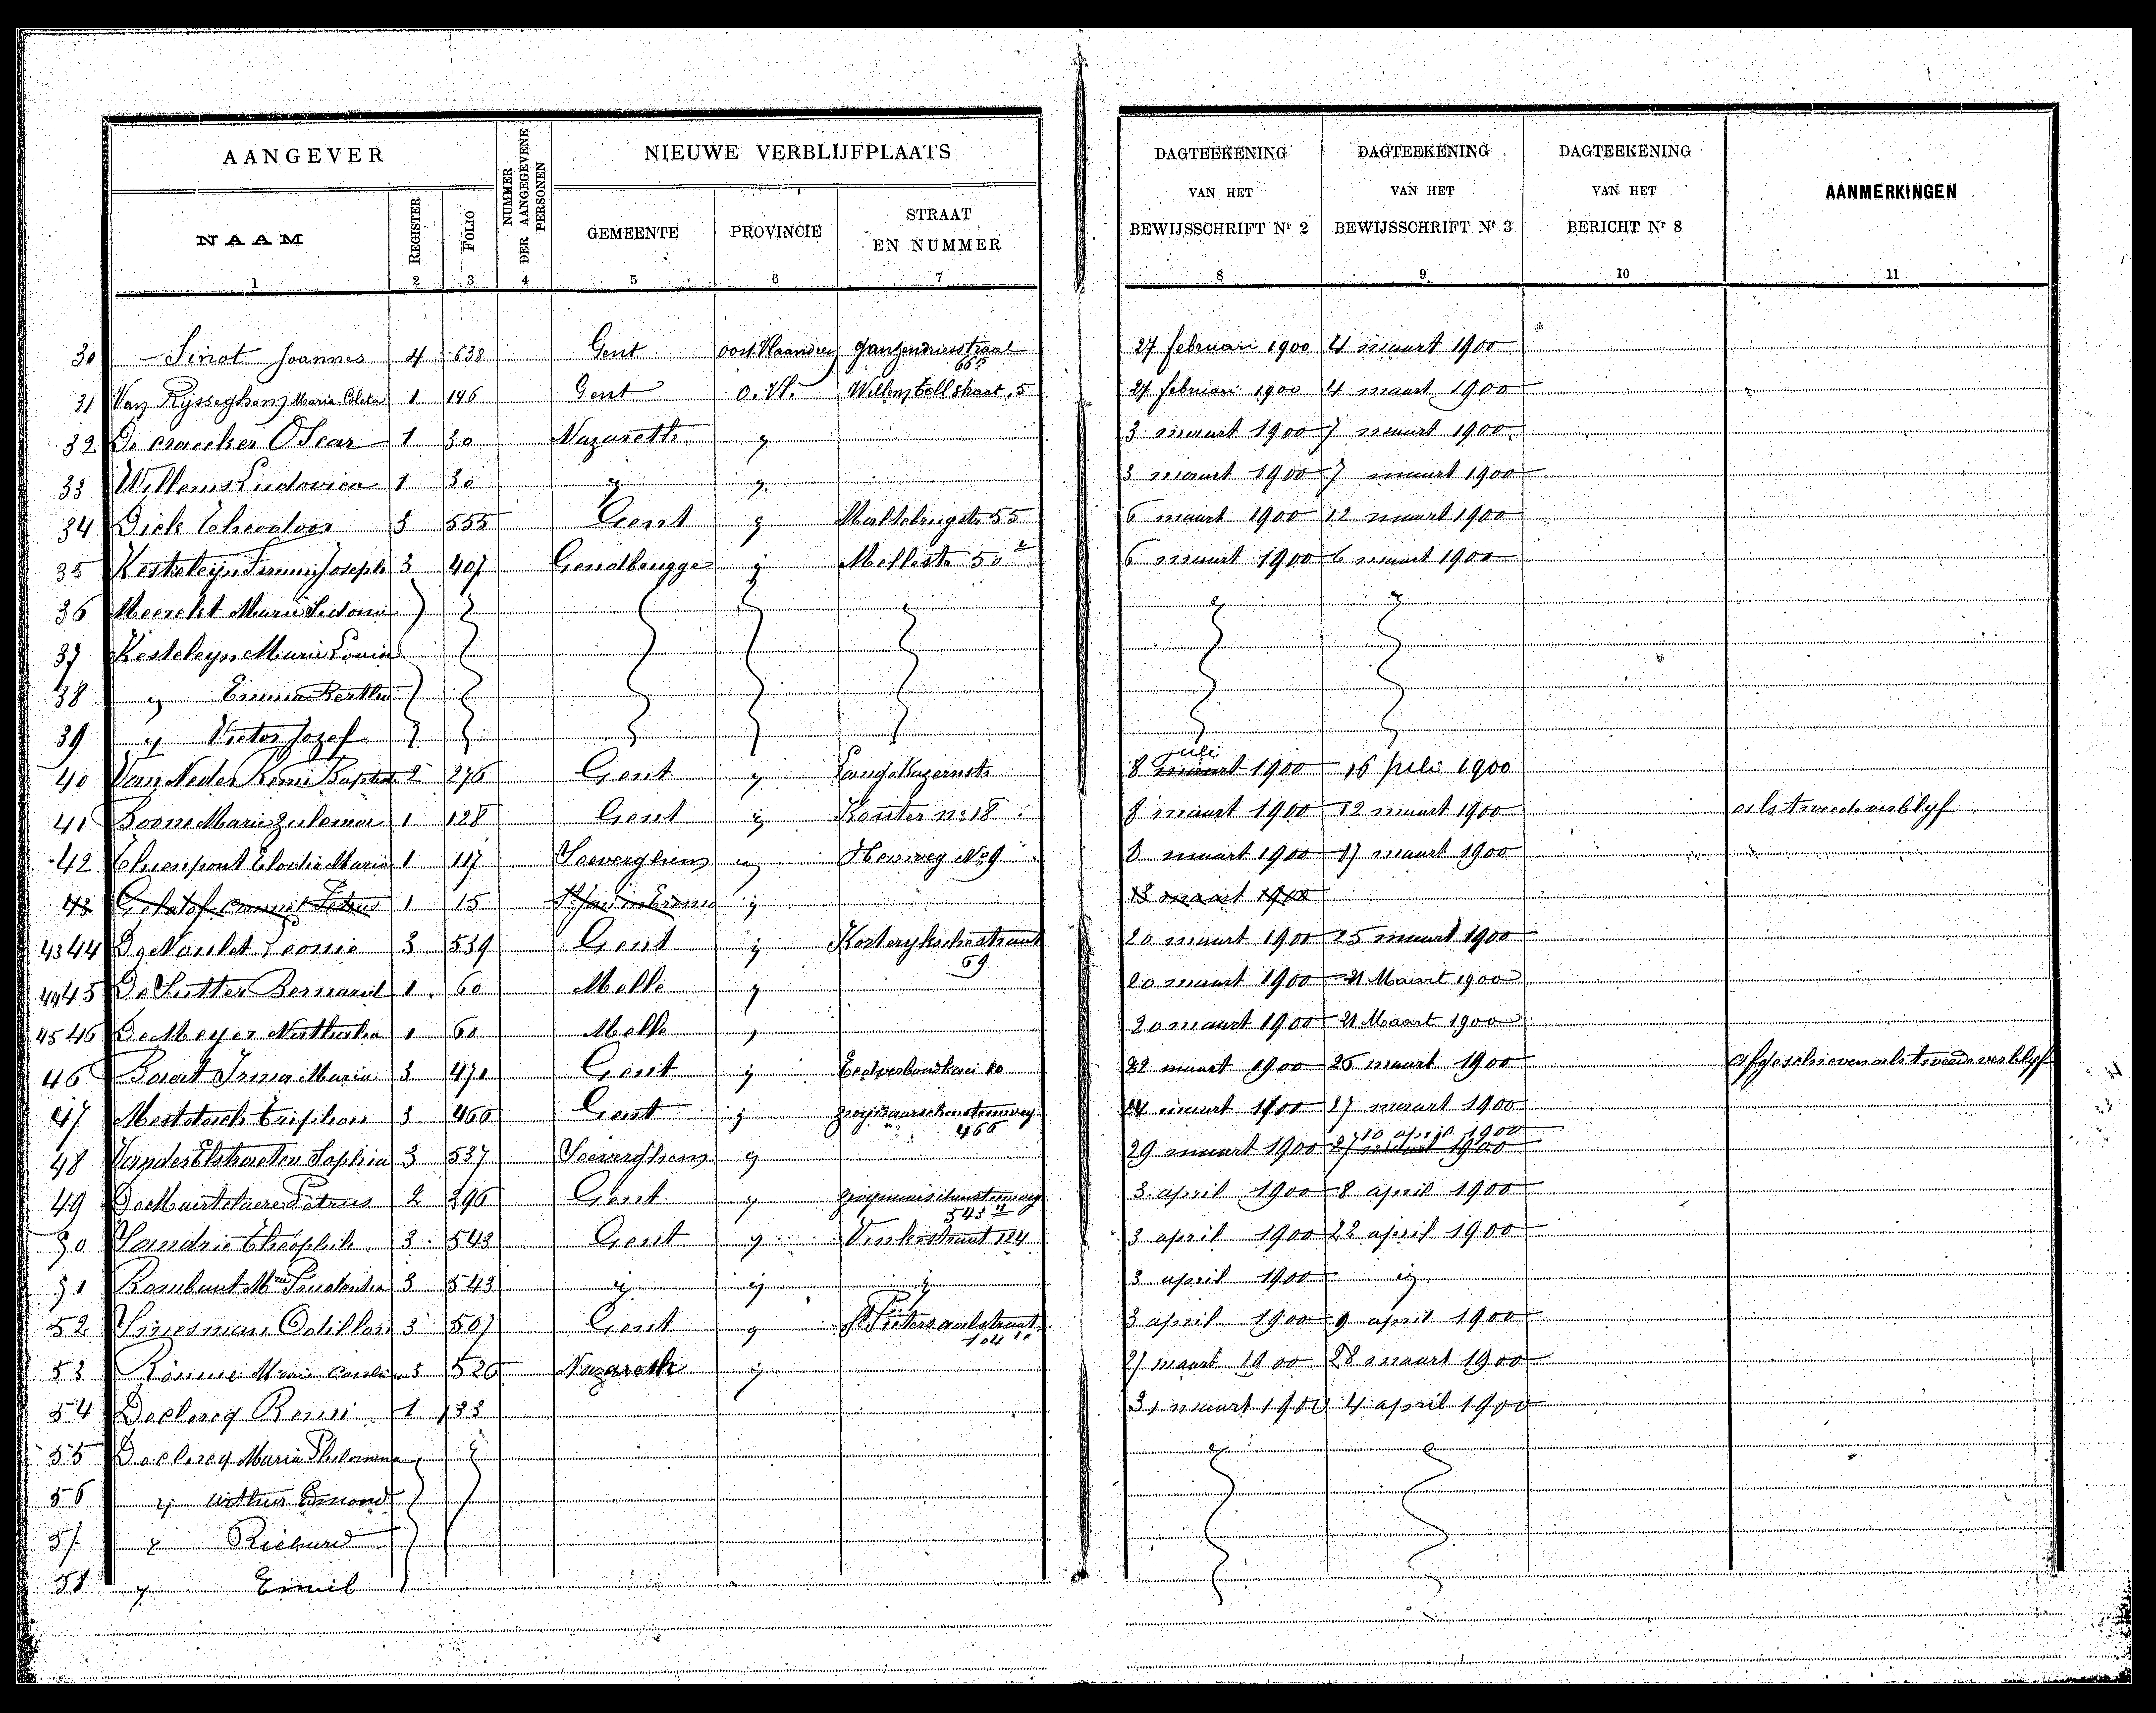 AANGEVER
NIEUWE VERBLIJFPLAATS
NUMMER DER AANGEGEVENE PERSONEN
DAGTEEKENING VAN HET BEWIJSSCHRIFT Nr 2
DAGTEEKENING VAN HET BEWIJSSCHRIFT Nr 3
DAGTEEKENING VAN HET BERICHT Nr 8
AANMERKINGEN
NAAM REGISTER FOLIO GEMEENTE PROVINCIE STRAAT EN NUMMER
1 2 3 4 5 6 7 8 9 10 11
30 Sinot Joannes 4 638 Gent oost Vlaanderen 27 februari 1900 4 maart 1900
31 Van Rysseghem Maria Coleta 1 146 Gent O. Vl. Willem Tellstraat 5 27 februari 1900 4 maart 1900
32 De craecker Oscar 1 30 Nazareth y 3 maart 1900 7 maart 1900
33 Willems Ludovica 1 30 y y 3 maart 1900 7 maart 1900
34 Dick 3 555 Gent y 55 6 maart 1900 12 maart 1900
35 Kesteleyn Firmin Joseph 3 407 Gendbrugge y Mellestr 50 6 maart 1900 6 maart 1900
36 Marie Sidonie y y
37 Kesteleyn Marie Louise
38 y Emma Bertha
39 y Victor Jozef
40 Van Neder Remi Baptist 2 276 Gent y Lange Kazernstr 8 juli 1900 16 juli 1900
41 Marie Zulema 1 128 Gent y Kouter no 18 8 maart 1900 12 maart 1900 als tweede verblyf
42 Thienpont Elodie Maria 1 117 Seeverghem y Heirweg No 9 8 maart 1900 17 maart 1900
43 Petrus 1 15 y 13 maart 1900
43 44 De Noulet Leonie 3 539 Gent y Kortryksche straat 20 maart 1900 25 maart 1900
69
44 45 De Sutter Bernard 1 60 Melle y 20 maart 1900 21 Maart 1900
45 46 De Meyer 1 60 Melle y 20 maart 1900 21 Maart 1900
46 Baert Irma Maria 3 471 Gent y 22 maart 1900 26 maart 1900 afgeschreven als tweede verblyf
47 Mestdach 3 466 Gent y 24 maart 1900 27 maart 1900
466
10 april 1900
48 Vander Elstraeten Sophia 3 537 Seeverghem y 29 maart 1900 27 maart 1900
49 De Maertelaere Petrus 2 396 Gent y 3 april 1900 8 april 1900
543
50 Theophile 3 543 Gent y Vinkestraat 124 3 april 1900 22 april 1900
51 Rombaut Mie Prudentia 3 543 y y y 3 april 1900 y
52 Odillon 3 507 Gent y St Pieters aalstraat 3 april 1900 9 april 1900
104
53 Marie 3 526 Nazareth y 27 maart 1900 28 maart 1900
54 Declercq Remi 1 133 31 maart 1900 4 april 1900
55 Declercq Maria Philomena
56 y Arthur Edmond
57 y Richard
58 y Emiel